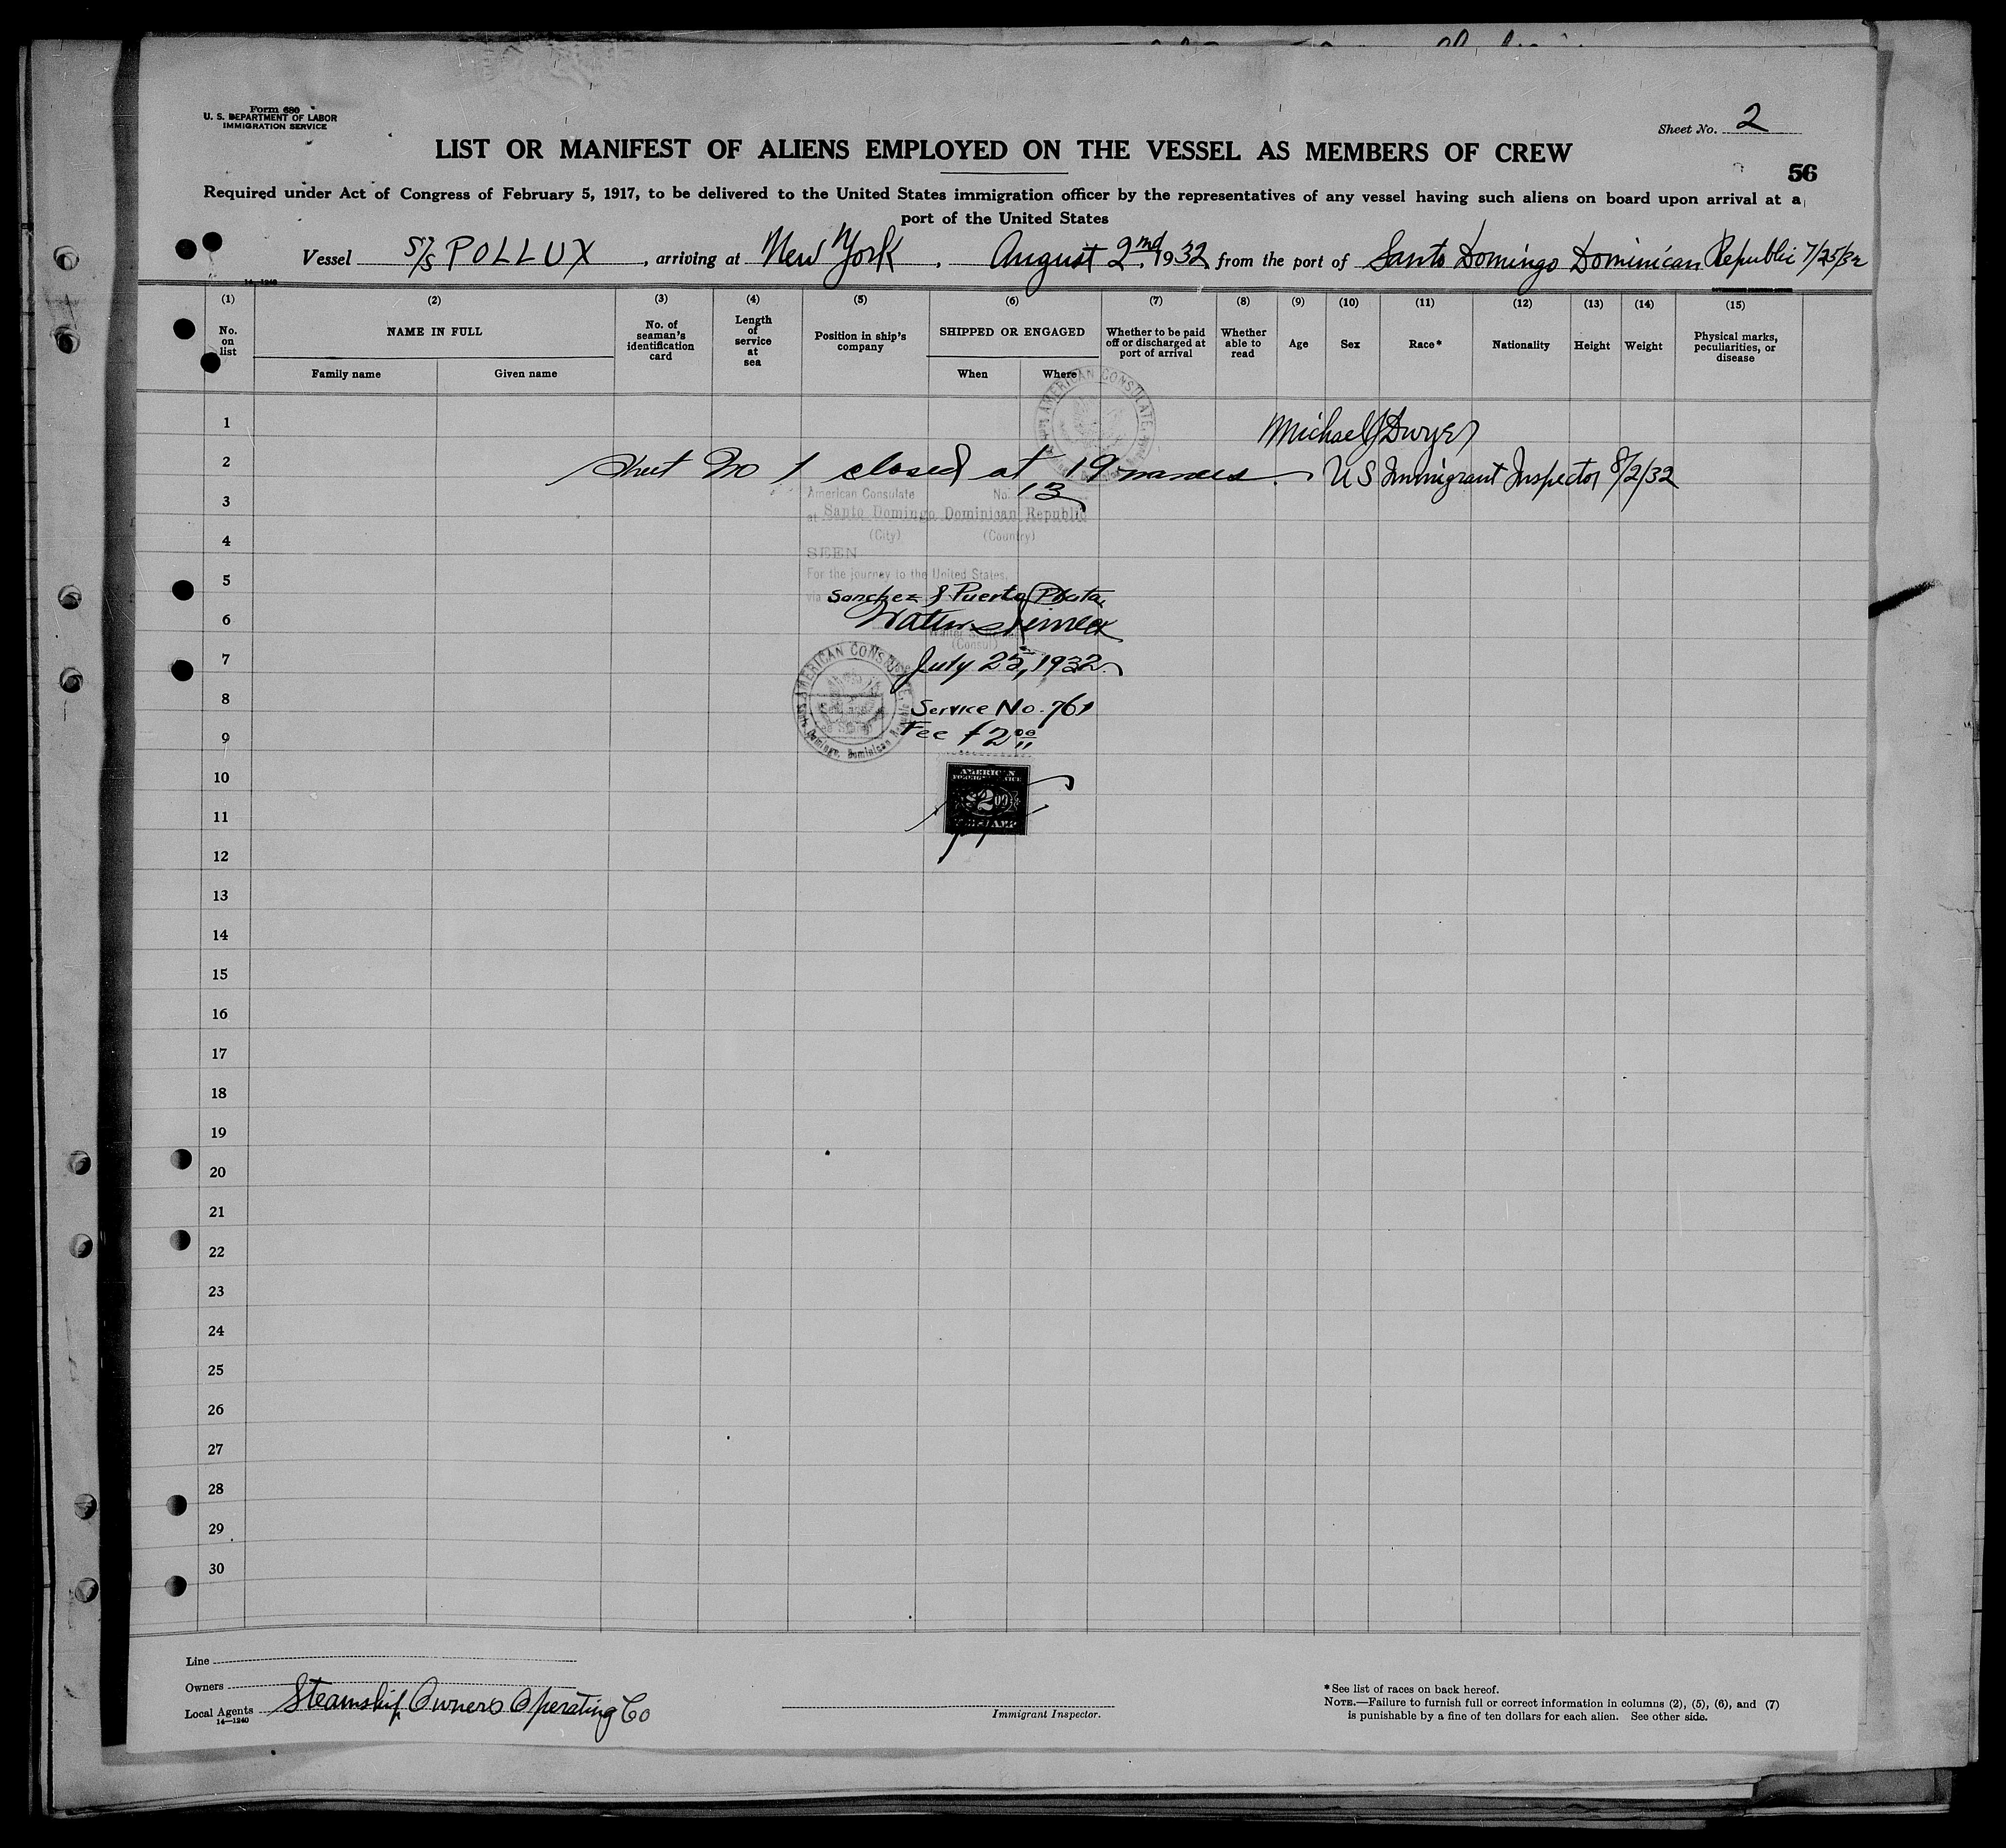 Form 680
U. S. DEPARTMENT OF LABOR
IMMIGRATION SERVICE
Sheet No. 2
LIST OR MANIFEST OF ALIENS EMPLOYED ON THE VESSEL AS MEMBERS OF CREW
56
Required under Act of Congress of February 5, 1917, to be delivered to the United States immigration officer by the representatives of any vessel having such aliens on board upon arrival at a
port of the United States
Vessel S/S POLLUX, arriving at New York. August 2nd. 1932 from the port of Santo Domingo Dominican Republic 7/25/32
14-1240
(1) (2) (3) (4) (5) (6) (7) (8) (9) (10) (11) (12) (13) (14) (15)
No. on list
NAME IN FULL
Family name
Given name
No. of seaman's identification card
Length of service at sea
Position in ship's company
SHIPPED OR ENGAGED
When
Where
Whether to be paid off or discharged at port of arrival
Whether able to read
Age
Sex
Race*
Nationality
Height
Weight
Physical marks, peculiarities, or disease
AMERICAN CONSULATE
1
Michael J Dwyer
2
Sheet No 1 closed at 19 names. US Immigrant Inspector 8/2/32
3
American Consulate No. 13
at Santo Domingo Dominican Republic
(City) (Country)
4
SEEN
5
For the journey to the United States,
via Sanchez & Puerto Plata
6
(Consul)
7
July 25, 1932
AMERICAN CONSULATE
Domingo, Dominican Republic
8
Service No. 761
9
Fee $2.00
10
AMERICAN
FOREIGN SERVICE
$2.00
FEE STAMP
11
12
13
14
15
16
17
18
19
20
21
22
23
24
25
26
27
28
29
30
Line
Owners
Local Agents Steamship Owners Operating Co
14—1240
Immigrant Inspector.
*See list of races on back hereof.
NOTE.—Failure to furnish full or correct information in columns (2), (5), (6), and (7)
is punishable by a fine of ten dollars for each alien. See other side.